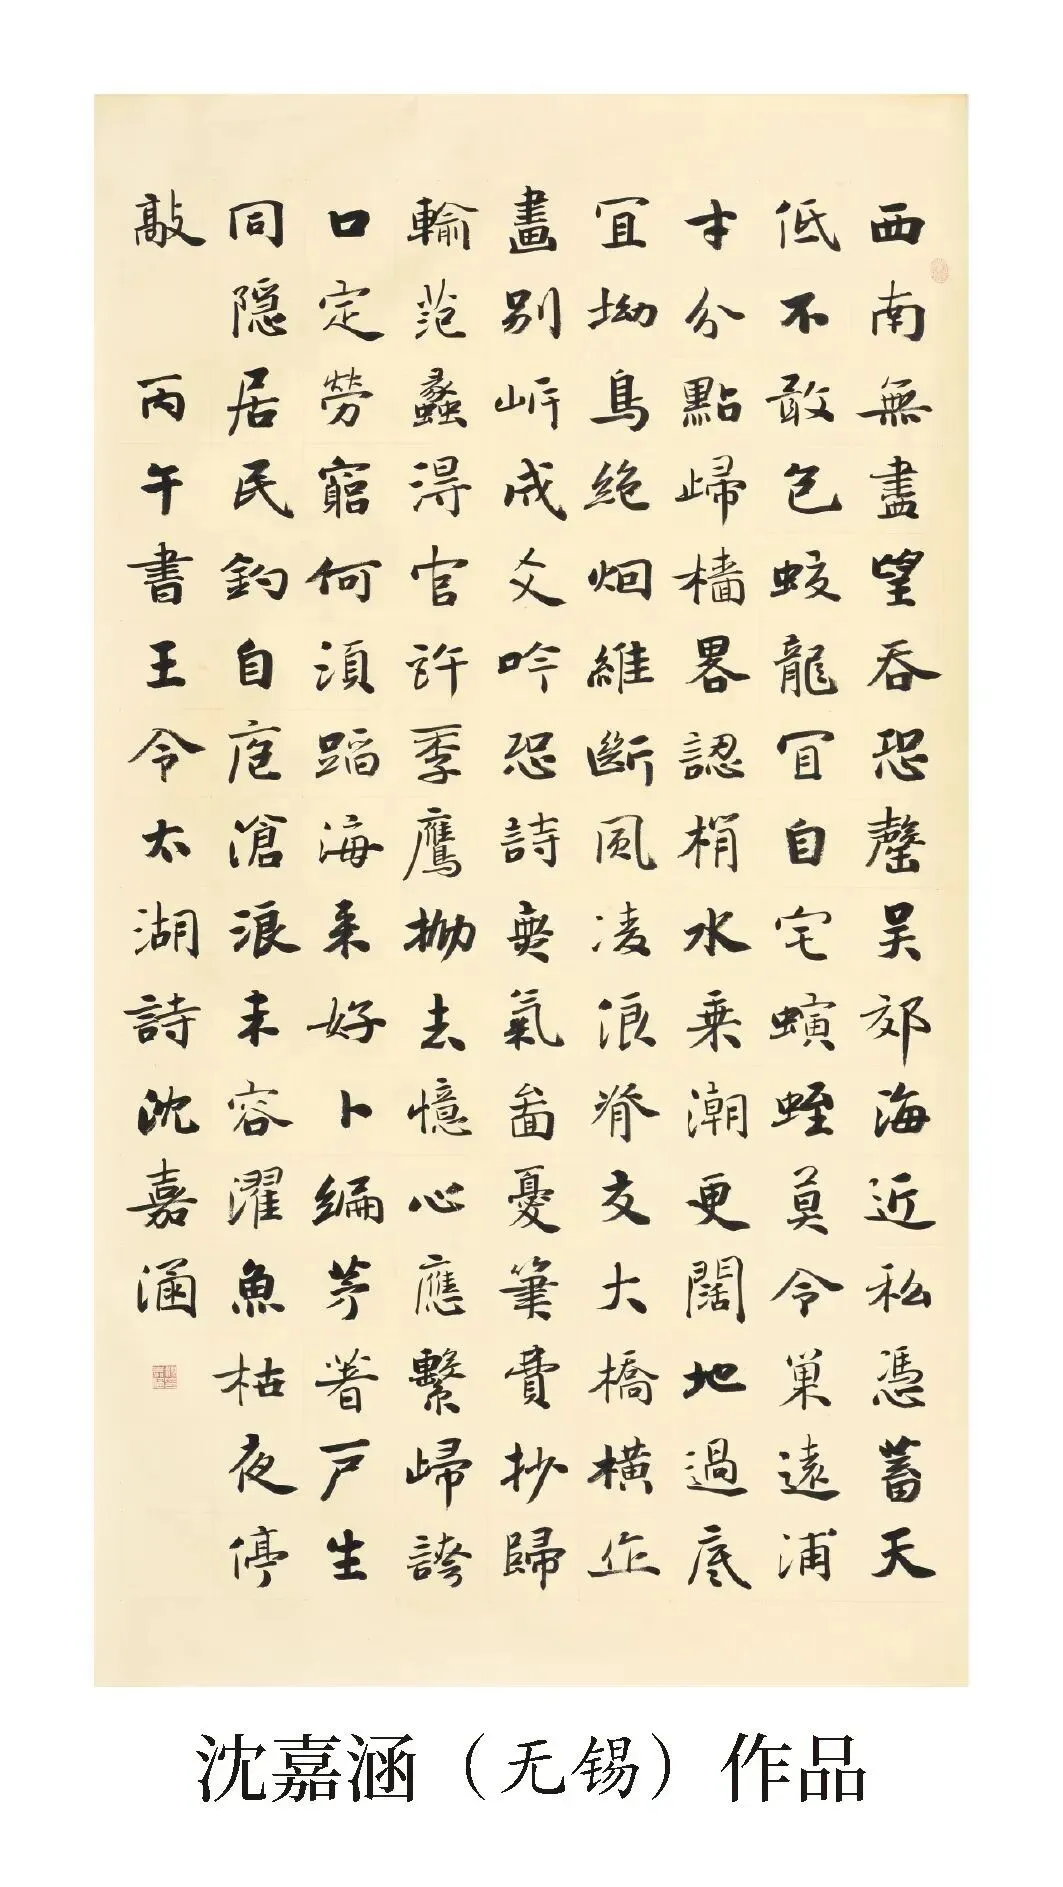 西南無盡望吞恐罄吴郊海近私憑蓄天
低不敢包蛟龍宜自宅螾蛭莫令巢遠浦
才分點歸檣畧認梢水乗潮更闊地過底
宜坳鳥絶烟維斷風凌浪脊交大橋横作
畫别岍成爻吟恐詩無氣啚憂筆費抄歸
輸范蠡得官許季鷹抛去憶心應繫歸誇
口定勞窮何須蹈海来好卜編茅着戸生
同隐居民釣自庖滄浪未容濯魚枯夜停
敲 丙午書王令太湖詩沈嘉涵
沈嘉涵（无锡）作品